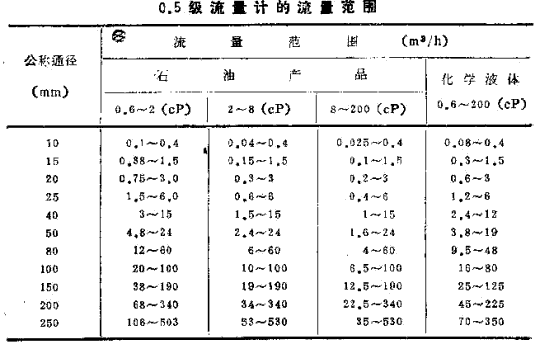 0.5级流量计的流量范围
公称通径 (mm) 流量范围 (m³/h)
石油产品 化学液体
0.6～2 (cP) 2～8 (cP) 8～200 (cP) 0.6～200 (cP)
10 0.1～0.4 0.04～0.4 0.025～0.4 0.08～0.4
15 0.38～1.5 0.15～1.5 0.1～1.5 0.3～1.5
20 0.75～3.0 0.3～3 0.2～3 0.6～3
25 1.5～6.0 0.6～6 0.4～6 1.2～6
40 3～15 1.5～15 1～15 2.4～12
50 4.8～24 2.4～24 1.6～24 3.8～19
80 12～60 6～60 4～60 9.5～48
100 20～100 10～100 6.5～100 16～80
150 38～190 19～190 12.5～190 25～125
200 68～340 34～340 22.5～340 45～225
250 106～503 53～530 35～530 70～350